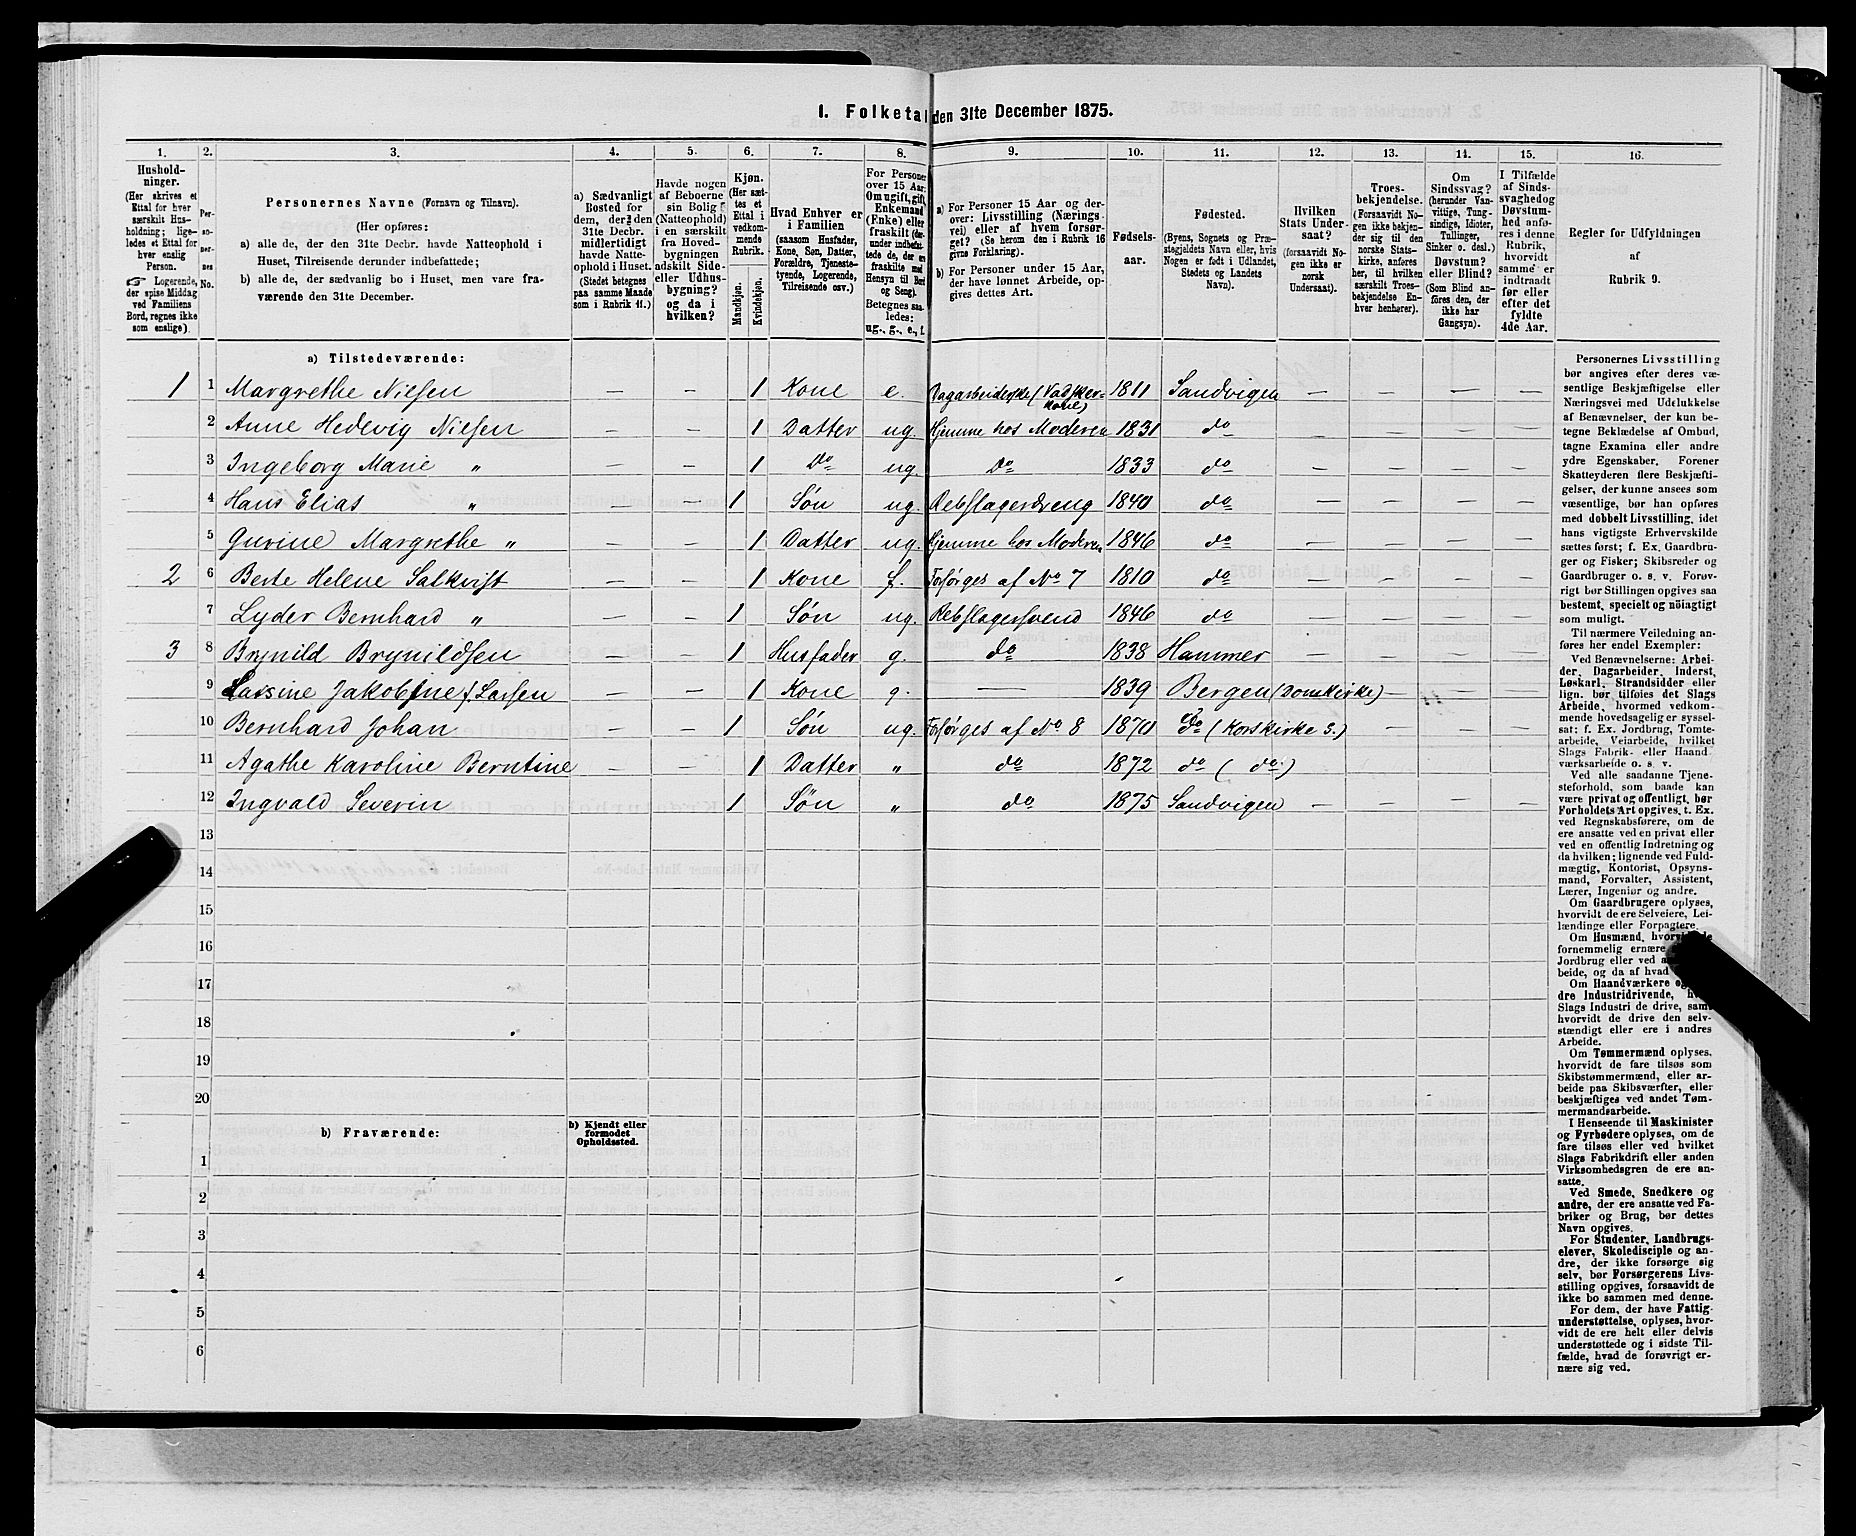 1. Folketal den 31te December 1875.
1. 2. 3. 4. 5. 6. 7. 8. 9. 10. 11. 12. 13. 14. 15. 16.
Hushold-
ninger.
(Her skrives et
Ettal for hver
særskilt Hus-
holdning; lige-
ledes et Ettal for
hver enslig
Person.
Logerende,
der spise Middag
ved Familiens
Bord, regnes ikke
som enslige).
Per-
so-
ner-
nes
No.
Personernes Navne (Fornavn og Tilnavn).
(Her opføres:
a) alle de, der den 31te Decbr. havde Natteophold i
Huset, Tilreisende derunder indbefattede;
b) alle de, der sædvanlig bo i Huset, men vare fra-
værende den 31te December.
a) Sædvanligt
Bosted for
dem, der den
31te Decbr.
midlertidigt
havde Natte-
ophold i Huset.
(Stedet betegnes
paa samme Maade
som i Rubrik 11.)
Havde nogen
af Beboerne
sin Bolig
(Natteophold)
i en særskilt
fra Hoved-
bygningen
adskilt Side-
eller Udhus-
bygning?
og da i
hvilken?
Kjøn.
(Her sæt-
tes et
Ettal i
vedkom-
mende
Rubrik.
Mandkjøn.
Kvindekjøn.
Hvad Enhver er
i Familien
(saasom Husfader,
Kone, Søn, Datter,
Forældre, Tjeneste-
tyende, Logerende,
Tilreisende osv.)
For Personer
over 15 Aar:
Om ugift, gift,
Enkemand
(Enke) eller
fraskilt (der-
under indbefat-
tede de, der ere
fraskilte med
Hensyn til Bord
og Seng).
Betegnes saa-
ledes:
ug., g., e., f.
a) For Personer 15 Aar og der-
over: Livsstilling (Nærings-
vei) eller af hvem forsør-
get? (Se herom den i Rubrik 16
givne Forklaring).
b) For Personer under 15 Aar,
der have lønnet Arbeide, op-
gives dettes Art.
Fødsels-
aar.
Fødested.
(Byens, Sognets og Præ-
stegjeldets Navn eller, hvis
Nogen er født i Udlandet,
Stedets og Landets
Navn).
Hvilken
Stats Under-
saat?
(forsaavidt No-
gen ikke er
norsk
Undersaat).
Troes-
bekjendelse.
(Forsaavidt No-
gen ikke bekjen-
der sig til den
norske Stats-
kirke, anføres
her, til hvilken
særskilt Troes-
bekjendelse En-
hver henhører).
Om
Sindssvag?
(herunder Van-
vittige, Tung-
sindige, Idioter,
Tullinger,
Sinker o. desl.)
Døvstum?
eller Blind?
(Som Blind an-
føres den, der
ikke har
Gangsyn).
I Tilfælde
af Sinds-
svaghed og
Døvstum-
hed anfø-
res i denne
Rubrik,
hvorvidt
samme er
indtraadt
før eller
efter det
fyldte
4de Aar.
Regler for Udfyldningen
af
Rubrik 9.
a) Tilstedeværende:
1 1 Margrethe Nielsen — — 1 Kone e. Dagarbeiderske (Vadsker-kone) 1811 Sandvigen — — — —
2 Anne Hedevig Nielsen — — 1 Datter ug. Hjemme hos Moderen 1831 do — — — —
3 Ingeborg Marie " — — 1 Do ug. Do 1833 do — — — —
4 Hans Elias " — — 1 Søn ug. Rebslagerdreng 1840 do — — — —
5 Gurine Margrethe " — — 1 Datter ug. Hjemme hos Moderen 1846 do — — — —
2 6 Berte Helene Salkvist — — 1 Kone f. Forsørges af No 7 1810 do — — — —
7 Lyder Bernhard " — — 1 Søn ug. Rebslagersvend 1846 do — — — —
3 8 Brynild Brynildsen — — 1 Husfader g. do 1838 Hammer — — — —
9 Larsine Jakobine f. Larsen — — 1 Kone g. — 1839 Bergen (Domkirke) — — —
10 Bernhard Johan — — 1 Søn ug. Forsørges af No 8 1870 do (Korskirke S.) — — —
11 Agathe Karoline Berntine — — 1 Datter " do 1872 do (do) — — — —
12 Ingvald Severin — — 1 Søn " do 1875 Sandvigen — — — —
13
14
15
16
17
18
19
20
b) Fraværende:
b) Kjendt eller
formodet
Opholdssted.
1
2
3
4
5
6
Personernes Livsstilling
bør angives efter deres væ-
sentlige Beskjæftigelse eller
Næringsvei med Udelukkelse
af Benævnelser, der kun be-
tegne Beklædelse af Ombud,
tagne Examina eller andre
ydre Egenskaber. Forener
Skatteyderen flere Beskjæfti-
gelser, der kunne ansees som
væsentlige, bør han opføres
med dobbelt Livsstilling, idet
hans vigtigste Erhvervskilde
sættes først; f. Ex. Gaardbru-
ger og Fisker; Skibsreder og
Gaardbruger o. s. v. Forøv-
rigt bør Stillingen opgives saa
bestemt, specielt og nöiagtigt
som muligt.
Til nærmere Veiledning an-
føres her endel Exempler:
Ved Benævnelserne: Arbei-
der, Dagarbeider, Inderst,
Løskarl, Strandsidder eller
lign. bør tilføies det Slags
Arbeide, hvormed vedkom-
mende hovedsagelig er syssel-
sat: f. Ex. Jordbrug, Tomte-
arbeide, Veiarbeide, hvilket
Slags Fabrik- eller Haand-
værksarbeide o. s. v.
Ved alle saadanne Tjene-
steforhold, som baade kan
være privat og offentligt, bør
Forholdets Art opgives, t. Ex.
ved Regnskabsførere, om de
ere ansatte ved en privat eller
ved en offentlig Indretning og
da hvilken; lignende ved Fuld-
mægtig, Kontorist, Opsyns-
mand, Forvalter, Assistent,
Lærer, Ingeniør og andre.
Om Gaardbrugere oplyses,
hvorvidt de ere Selveiere, Lei-
lændinge eller Forpagtere.
Om Husmænd,
fornemmelig ernære
Jordbrug eller ved
beide, og da af hvad
Om Haandværkere
dre Industridrivende,
Slags Industri de drive, samt
hvorvidt de drive den selv-
stændigt eller ere i andres
Arbeide.
Om Tømmermænd oplyses,
hvorvidt de fare tilsøs som
Skibstømmermænd, eller ar-
beide paa Skibsværfter, eller
beskjæftiges ved andet Tøm-
mermandsarbeide.
I Henseende til Maskinister
og Fyrbødere oplyses, om de
fare tilsøs eller ved hvilket
Slags Fabrikdrift eller anden
Virksomhedsgren de ere an-
satte.
Ved Smede, Snedkere og
andre, der ere ansatte ved Fa-
briker og Brug, bør dettes
Navn opgives.
For Studenter, Landbrugs-
elever, Skoledisciple og an-
dre, der ikke forsørge sig
selv, bør Forsørgerens Livs-
stilling opgives, forsaavidt de
ikke bo sammen med denne.
For dem, der have Fattig-
understøttelse, oplyses, hvor-
vidt de ere helt eller delvis
understøttede og i sidste Til-
fælde, hvad de forøvrigt er-
nære sig ved.